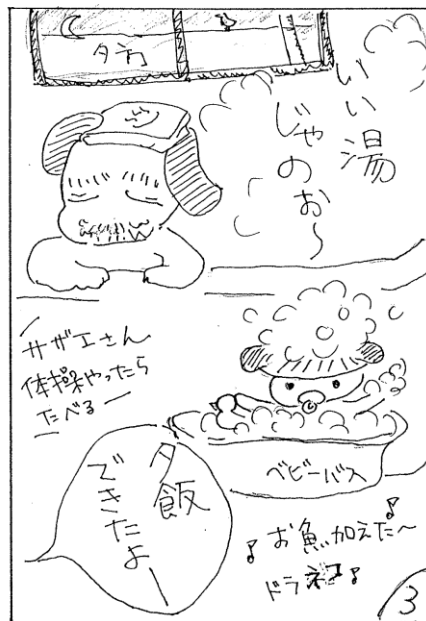 夕方
いい湯
じゃのお〜
サザエさん
体操やったら
たべるー
ベビーバス
夕飯
できたよー
♪お魚加えた〜
ドラネコ♪
3